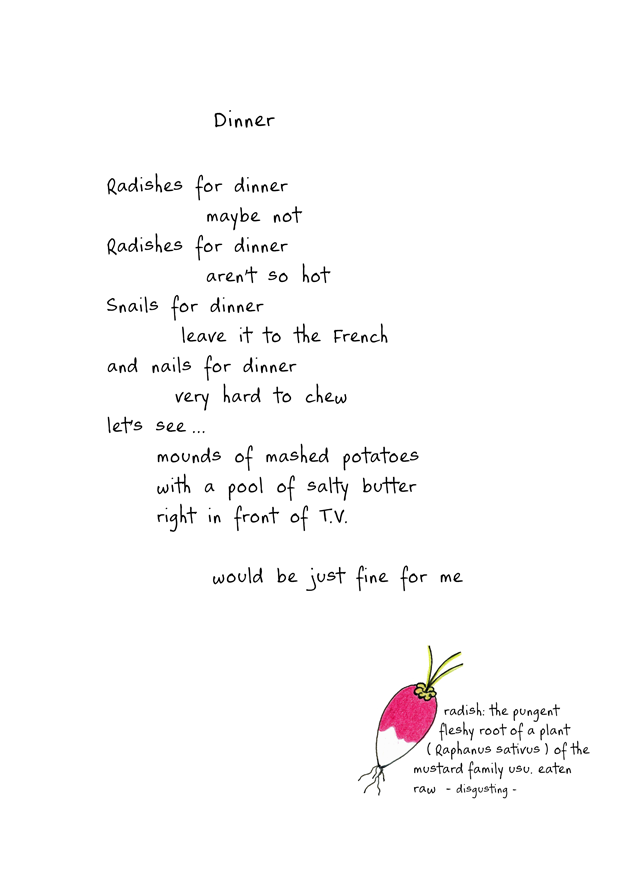 Dinner
Radishes for dinner
maybe not
Radishes for dinner
aren't so hot
Snails for dinner
leave it to the French
and nails for dinner
very hard to chew
let's see ...
mounds of mashed potatoes
with a pool of salty butter
right in front of T.V.
would be just fine for me
radish: the pungent
fleshy root of a plant
( Raphanus sativus ) of the
mustard family usu. eaten
raw - disgusting -